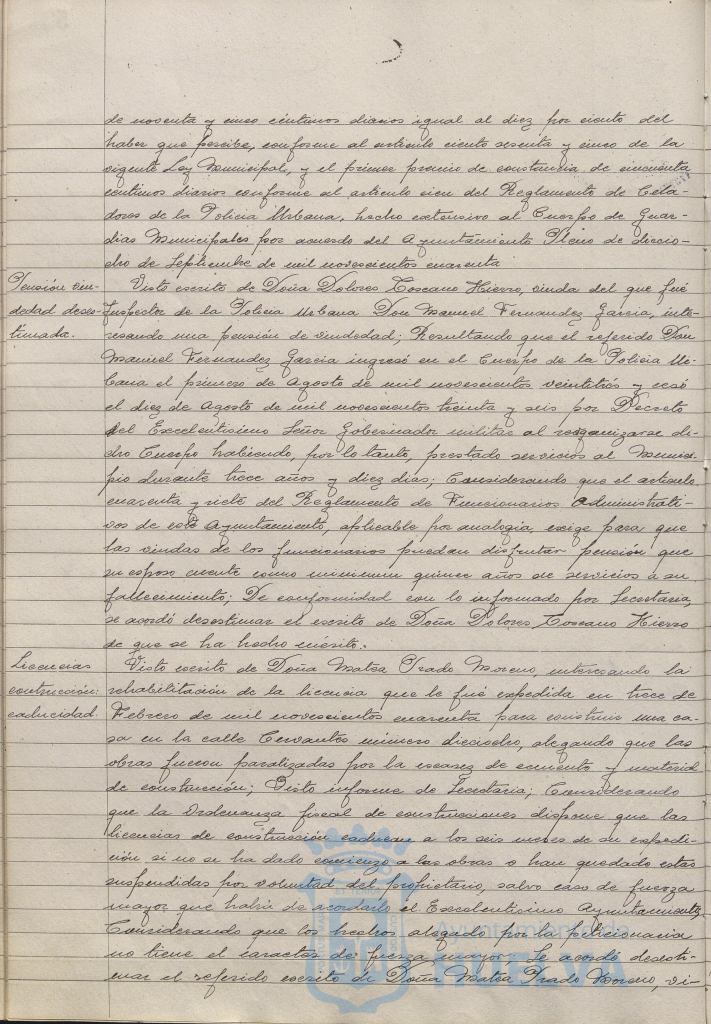 de noventa y cinco céntimos diarios igual al diez por ciento del
haber que percibe, conforme al artículo ciento sesenta y cinco de la
vigente Ley Municipal, y el primer premio de constancia de cincuenta
céntimos diarios conforme al artículo cien del Reglamento de Cela-
dores de la Policía Urbana, hecho extensivo al Cuerpo de Guar-
dias Municipales por acuerdo del Ayuntamiento Pleno de diecio-
cho de Septiembre de mil novecientos cuarenta
Pensión viu-
dedad deses-
timada.
Visto escrito de Doña Dolores Toscano Hierro, viuda del que fué
Inspector de la Policía Urbana Don Manuel Fernandez Garcia, inte-
resando una pensión de viudedad; Resultando que el referido Don
Manuel Fernandez Garcia ingresó en el Cuerpo de la Policía Ur-
bana el primero de Agosto de mil novecientos veintitrés y cesó
el diez de Agosto de mil novecientos treinta y seis por Decreto
del Excelentísimo Señor Gobernador militar al reorganizarse di-
cho Cuerpo habiendo, por lo tanto, prestado servicios al Munici-
pio durante trece años y diez dias; Considerando que el artículo
cuarenta y siete del Reglamento de Funcionarios Administrati-
vos de este Ayuntamiento, aplicable por analogia, exige para que
las viudas de los funcionarios puedan disfrutar pensión que
su esposo cuente como minimum quince años de servicios a su
fallecimiento; De conformidad con lo informado por Secretaria,
se acordó desestimar el escrito de Doña Dolores Toscano Hierro
de que se ha hecho mérito.
Licencias
contrucción:
caducidad.
Visto escrito de Doña Matea Prado Moreno, interesando la
rehabilitación de la licencia que le fué expedida en trece de
Febrero de mil novecientos cuarenta para construir una ca-
sa en la calle Cervantes número dieciocho, alegando que las
obras fueron paralizadas por la escasez de cemento y material
de construcción; Visto informe de Secretaria; Considerando
que la Ordenanza fiscal de construcciones dispone que las
licencias de construcción caducan a los seis meses de su expedi-
ción si no se ha dado comienzo a las obras o han quedado estas
suspendidas por voluntad del propietario, salvo caso de fuerza
mayor que habrá de acordarlo el Excelentísimo Ayuntamiento;
Considerando que los hechos alegado por la peticionaria
no tiene el caracter de fuerza mayor, Se acordó desesti-
mar el referido escrito de Doña Matea Prado Moreno, vi-
ayuntamiento de
HUELVA